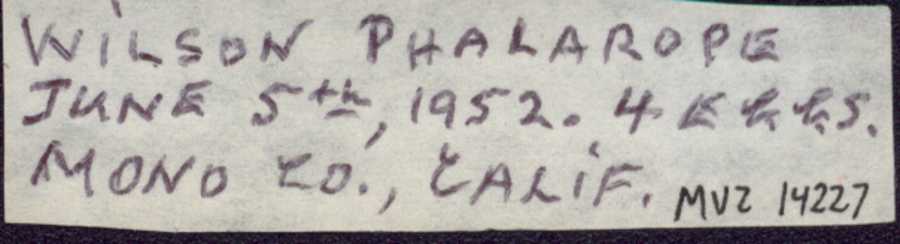 WILSON PHALAROPE
JUNE 5th, 1952. 4 EGGS.
MONO CO., CALIF. MVZ 14227